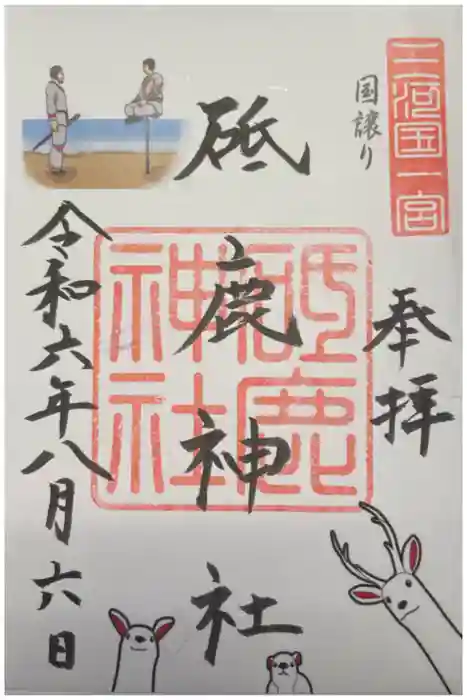 三河国一宮
国譲り
奉拝
砥鹿神社
砥鹿
神社
令和六年八月六日